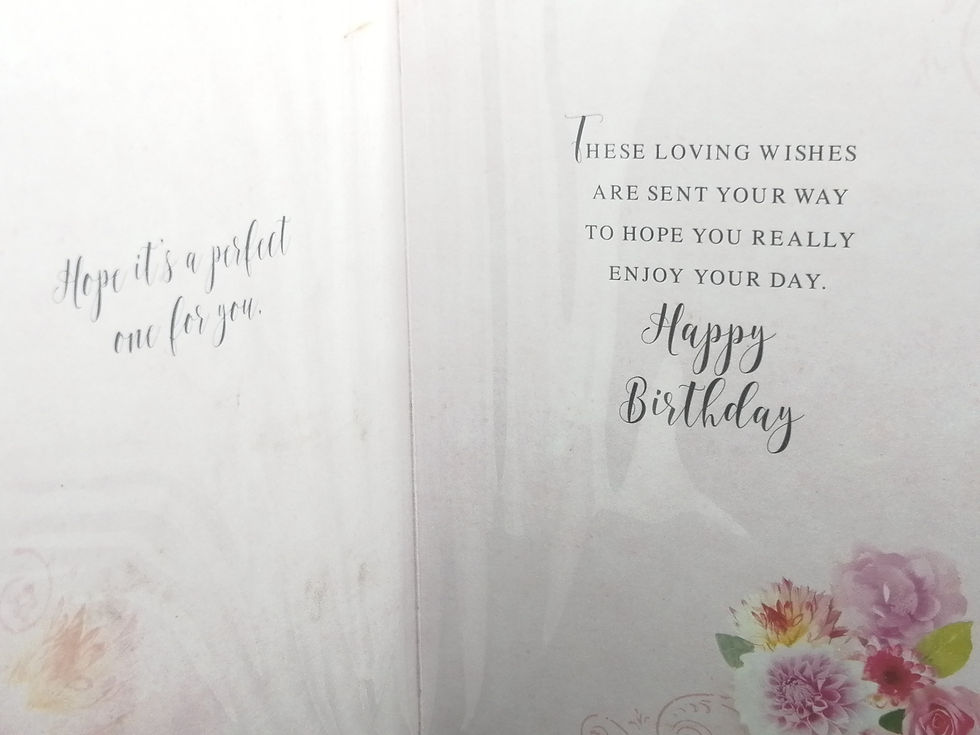 Hope it's a perfect
one for you.
THESE LOVING WISHES
ARE SENT YOUR WAY
TO HOPE YOU REALLY
ENJOY YOUR DAY.
Happy
Birthday